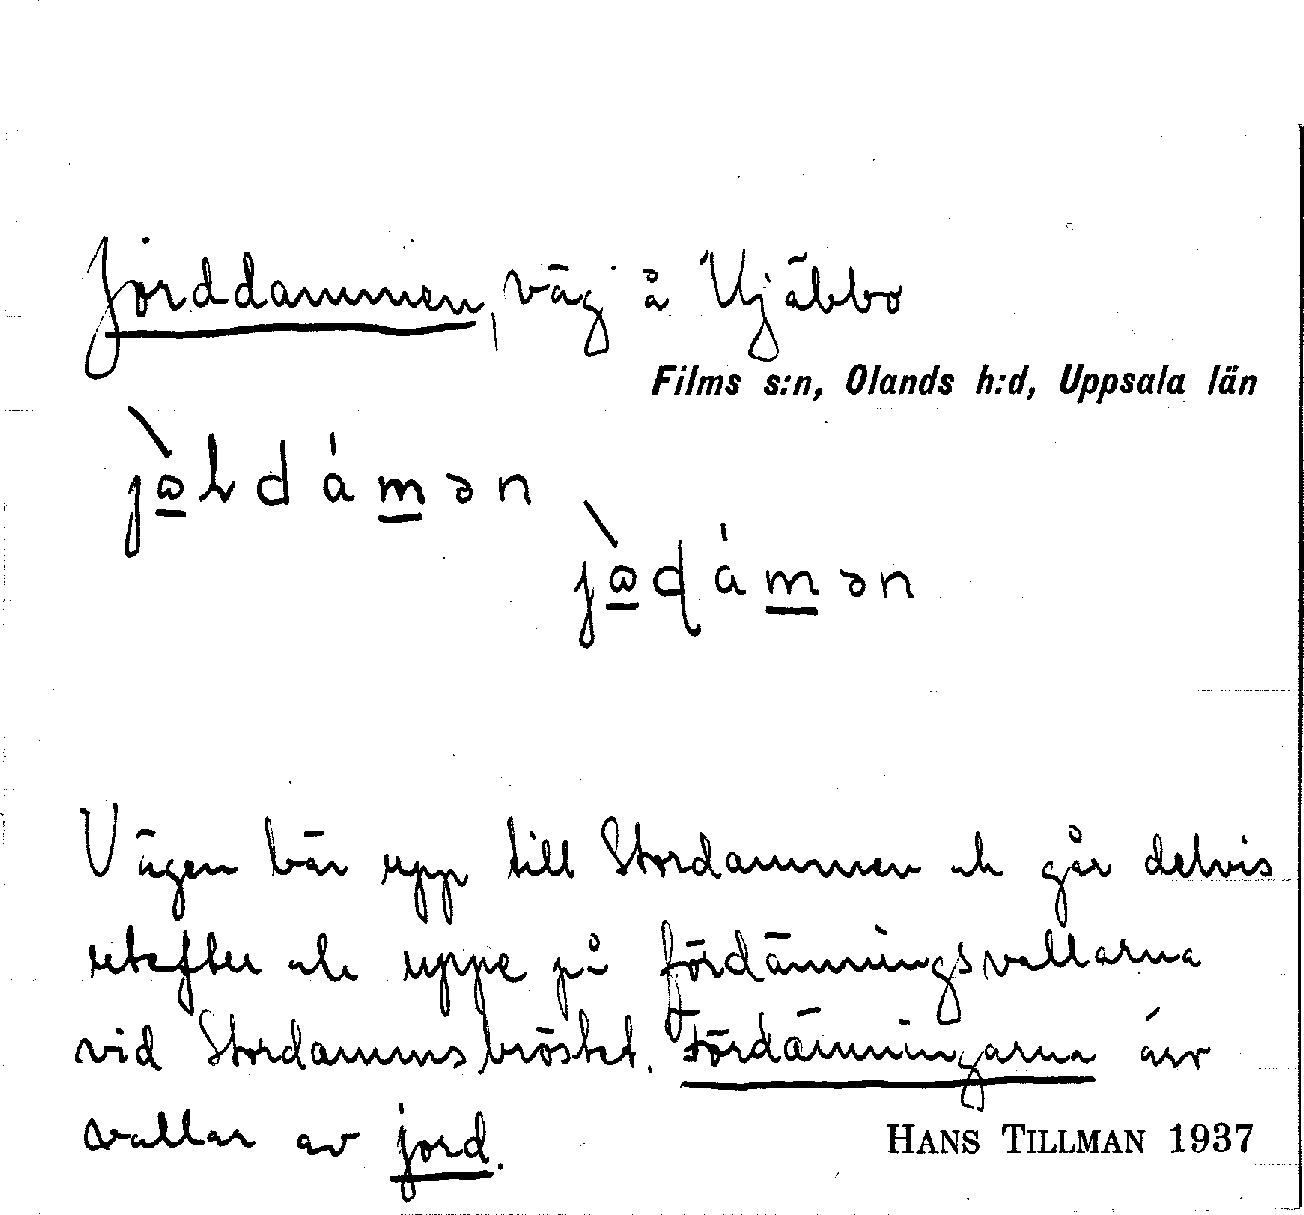 Jorddammen, väg å Ujäbbo
Films s:n, Olands h:d, Uppsala län
dámən
dámən
Vägen bär upp till Stordammen och går delvis
utefter och uppe på fördämningsvallarna
vid Stordammsbröstet. Fördämningarna är
vallar av jord.
HANS TILLMAN 1937